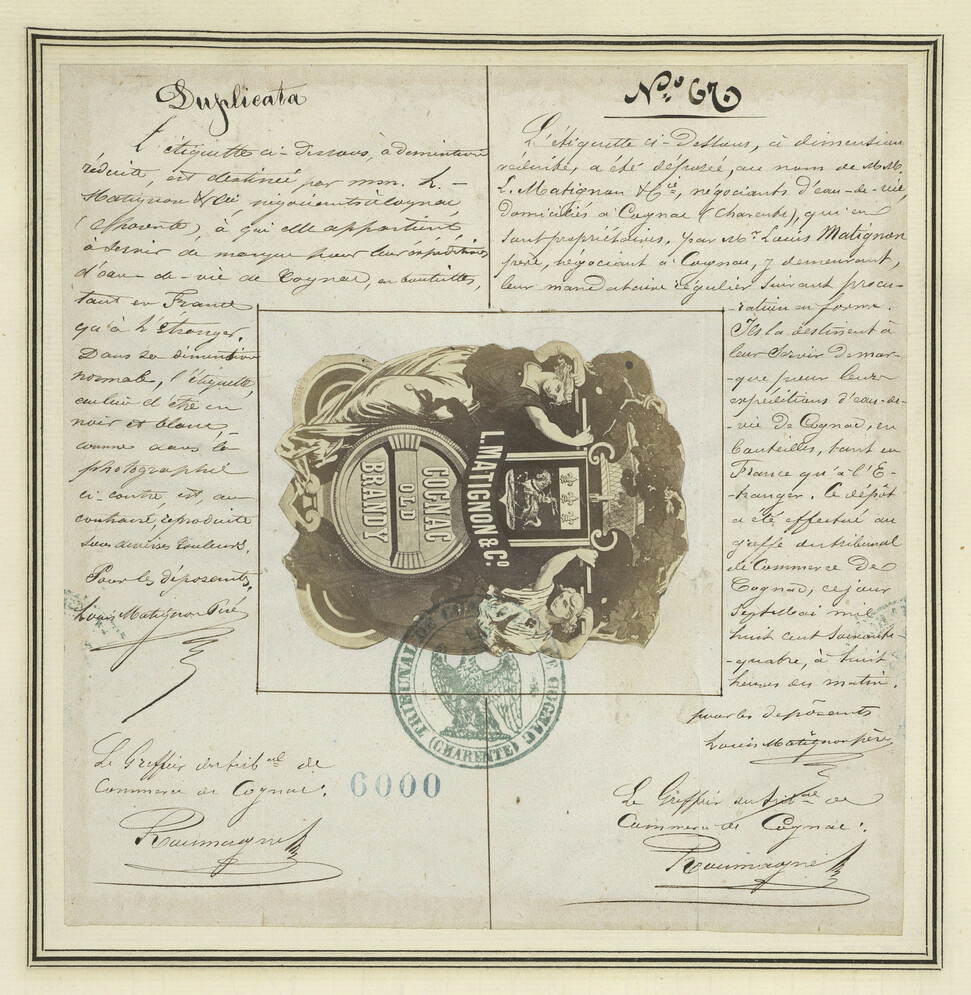 Duplicata
L'étiquette ci-dessous, à dimension
réduite, est destinée par MM. L.
Matignon & Cie négociants à Cognac
(Charente), à qui elle appartient,
à servir de marque pour leurs expéditions
d'eau-de-vie de Cognac, en bouteilles,
tant en France
qu'à l'étranger.
Dans sa dimension
normale, l'étiquette,
au lieu d'être en
noir et blanc,
comme dans la
photographie
ci-contre est, au
contraire, reproduite
sous diverses couleurs.
Pour les déposants,
Louis Matignon Père
Le Greffier du tribnal de
Commerce de Cognac.
Roumagne
6000
No. 67.
L'étiquette ci-Dessous, à dimension
réduite, a été déposée, au nom de M.M.
L. Matignon & Cie, négociants d'eau-de-vie,
domiciliés à Cognac (Charente), qui en
sont propriétaires, par Mr. Louis Matignon
père, négociant à Cognac, y demeurant,
leur mandataire régulier suivant procu-
-ration en forme.
Ils la destinent à
leur servir de mar-
-que pour leurs
expéditions d'eau-de-
-vie de Cognac, en
bouteilles, tant en
France qu'à l'E-
-tranger. Le dépôt
a été effectué au
greffe du tribunal
de Commerce de
Cognac, ce jour
Sept Mai mil
huit cent soixante-
-quatre, à huit
heures du matin.
pour les déposants
Louis Matignon père
Le Greffier du tribal de
Commerce de Cognac.
Roumagne
L. MATIGNON & Co.
COGNAC
OLD
BRANDY
TRIBUNAL DE COMMERCE DE COGNAC
(CHARENTE)